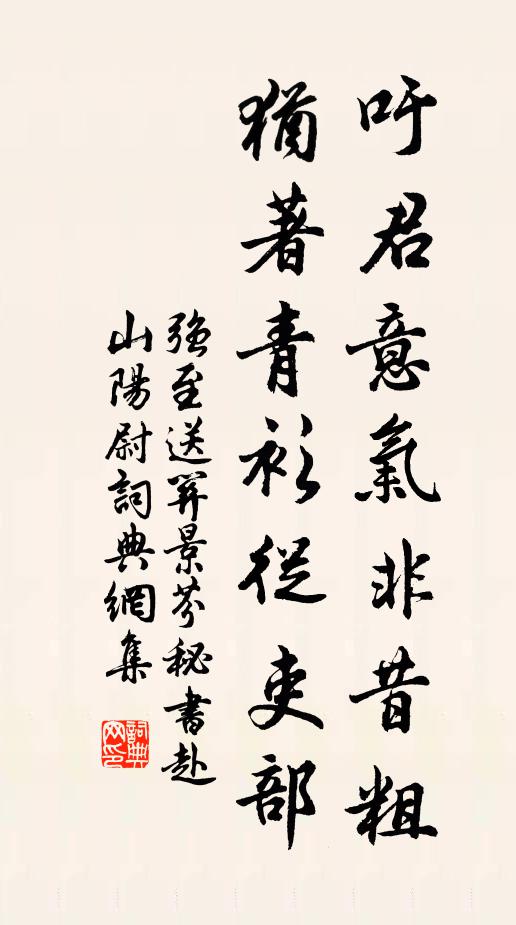 吁君意氣非昔粗
猶著青衫從吏部
強至送羿景芬秘書赴
山陽尉詞典網集
詞典网印